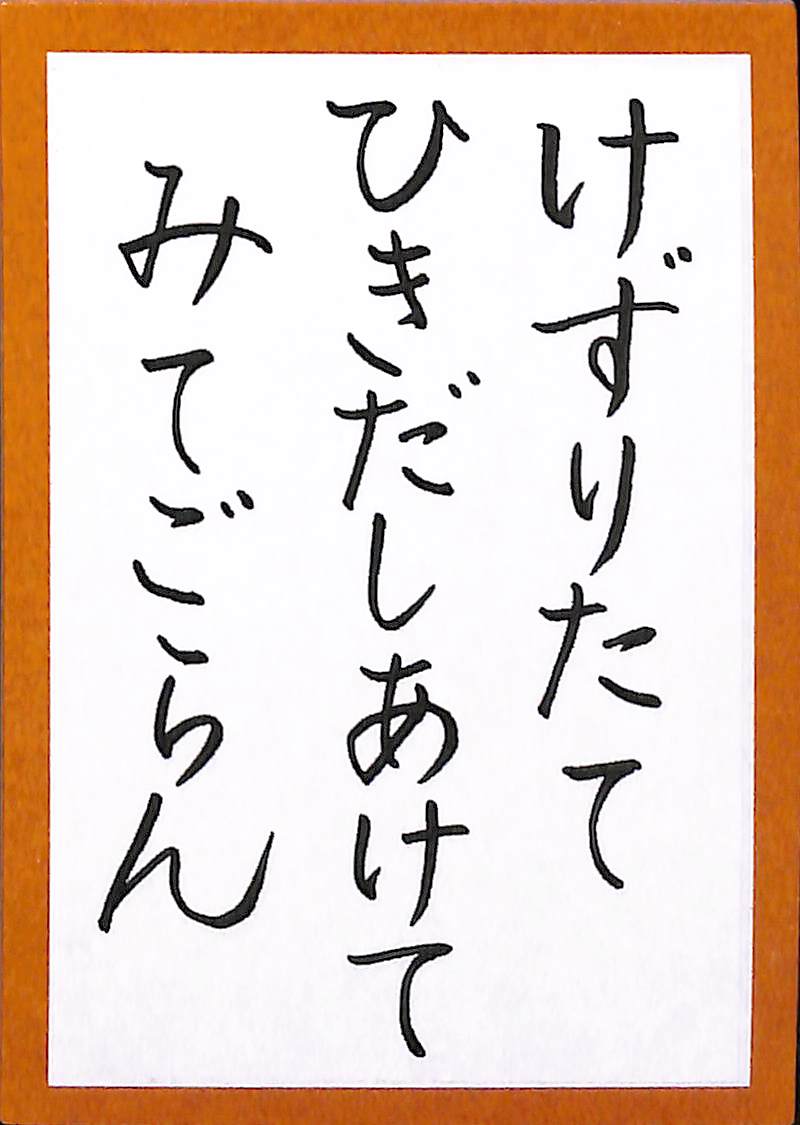 けずりたて
ひきだしあけて
みてごらん